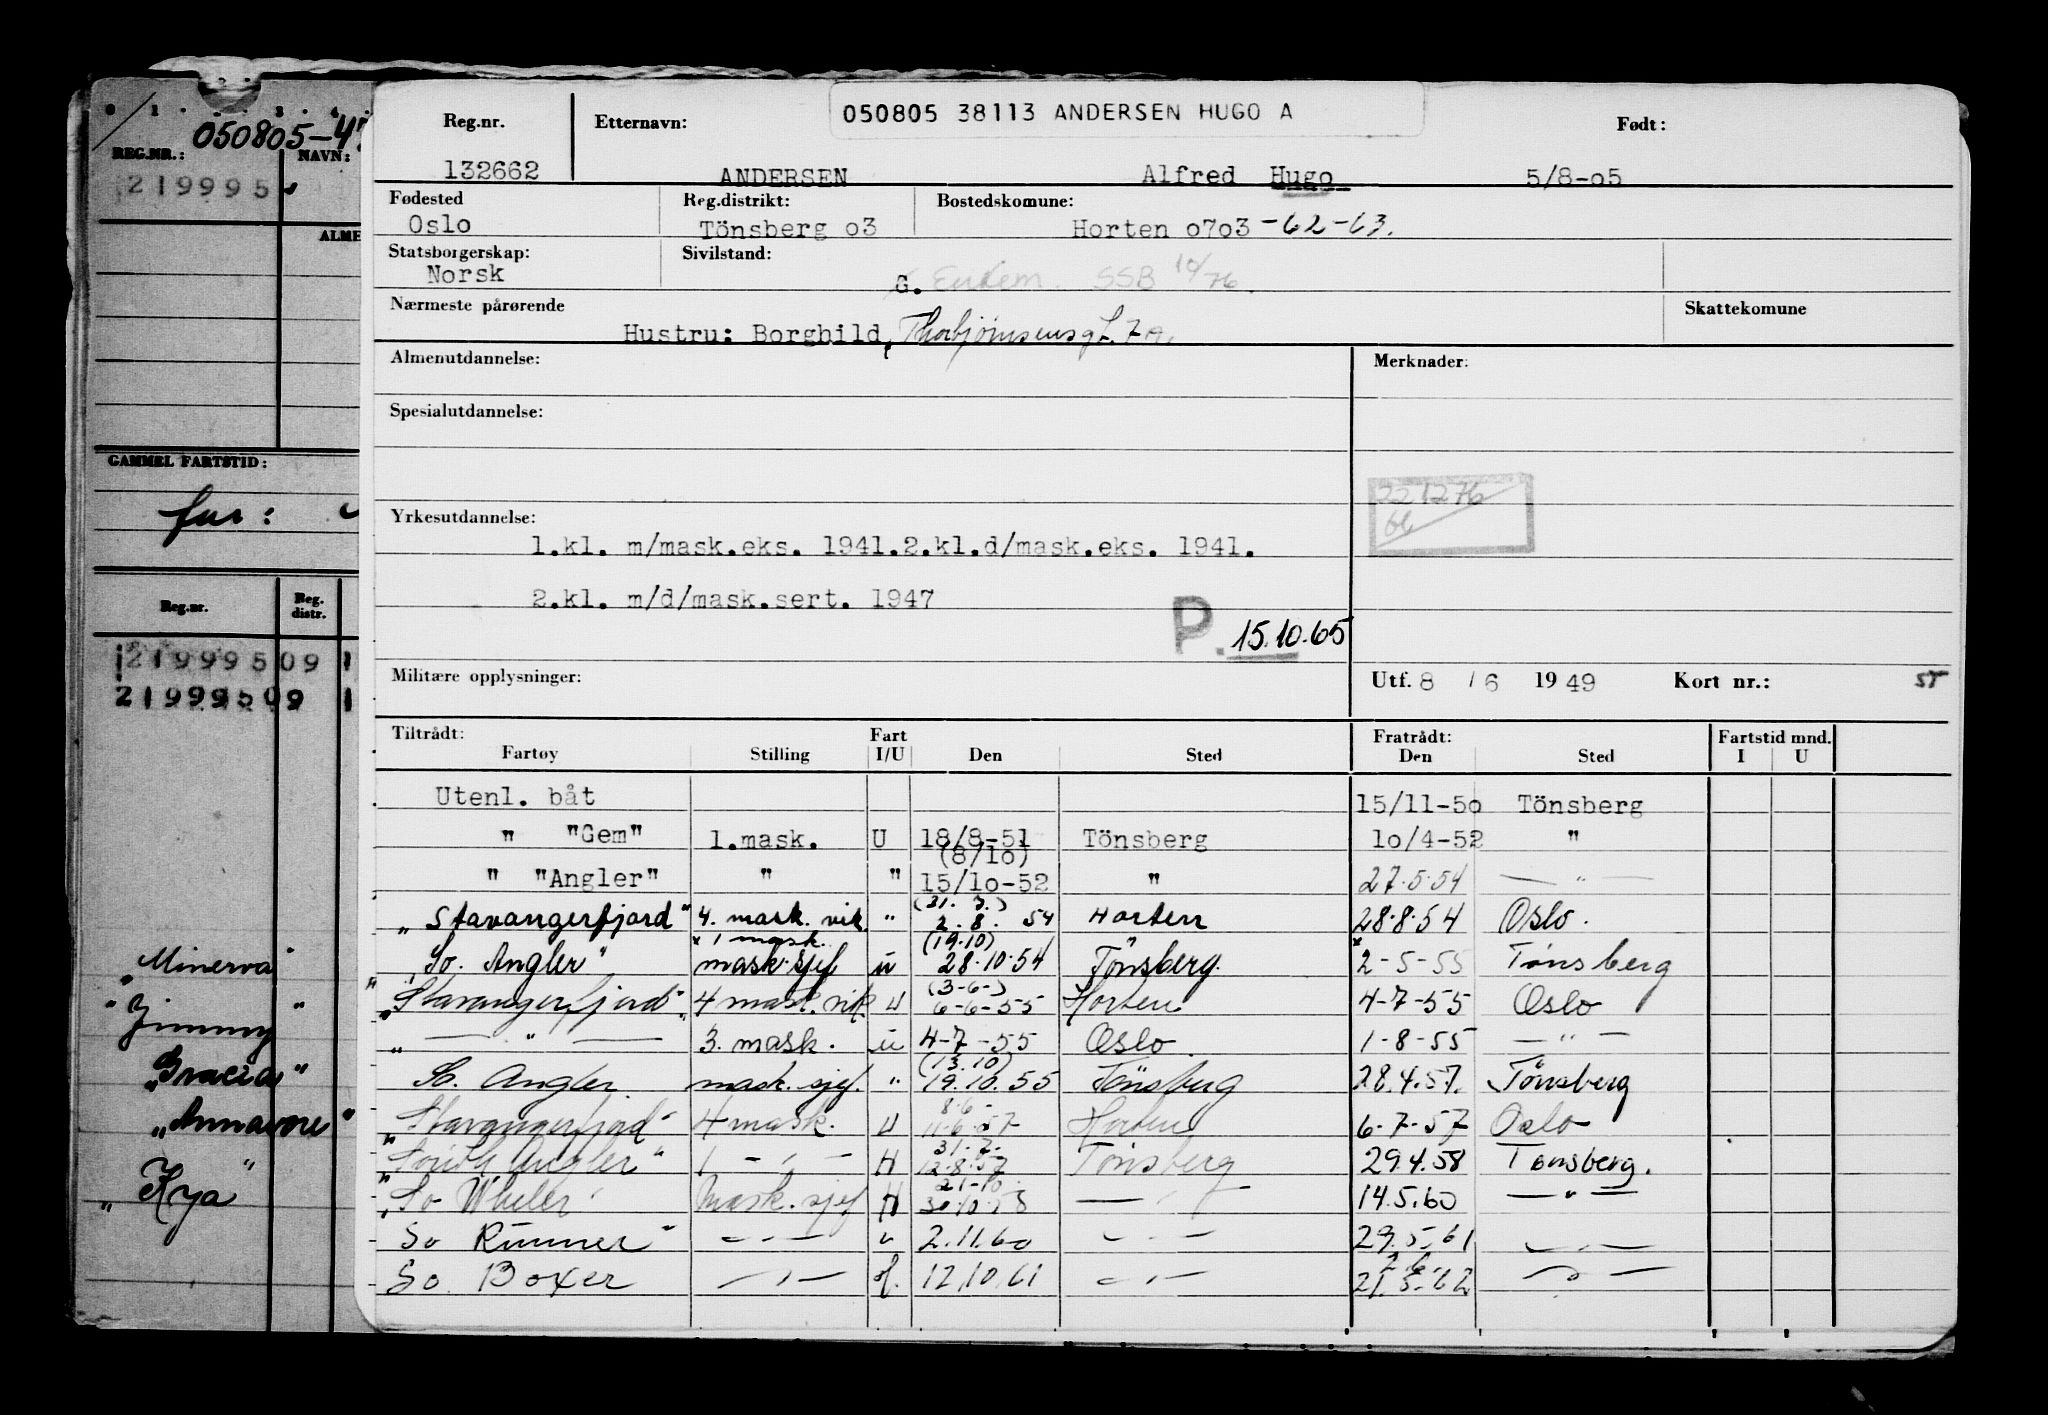 050805-4
REG.NR.: NAVN:
219995
ALME
GAMMEL FARTSTID:
før:
Reg.nr. Reg. distr.
21999509 1
21999509 1
"Minerva"
"Jimmy"
"Gracia"
"Annavore"
"Kya"
050805 38113 ANDERSEN HUGO A
Reg.nr. Etternavn: Født:
132662 ANDERSEN Alfred Hugo 5/8-05
Fødested Reg.distrikt: Bostedskomune:
Oslo Tönsberg 03 Horten 0703 -62-63.
Statsborgerskap: Sivilstand:
Norsk G. Enkem. SSB 10/76
Nærmeste pårørende Skattekomune
Hustru: Borghild, Thorbjørnsensgt. 7a.
Almenutdannelse: Merknader:
Spesialutdannelse:
221276
Yrkesutdannelse:
1.kl. m/mask.eks. 1941.2.kl.d/mask.eks. 1941.
2.kl. m/d/mask.sert. 1947
P. 15.10.65
Militære opplysninger: Utf. 8 / 6 1949 Kort nr.: 55
Tiltrådt: Fart Fratrådt: Fartstid mnd.
Fartøy Stilling I/U Den Sted Den Sted I U
Utenl. båt 15/11-50 Tönsberg
" "Gem" 1.mask. U 18/8-51 (8/10) Tönsberg 10/4-52 "
" "Angler" " " 15/10-52 " 27.5.54 — " —
"Stavangerfjord" 4. mask. vik. " (31. 7.) 2. 8. 54 Horten 28.8.54 Oslo.
"So. Angler" x 1 mask. mask. sjef u (19.10) 28.10.54 Tönsberg. x 2-5-55 Tönsberg
"Stavangerfjord" 4 mask. vik. U (3-6-) 6-6-55 Horten 4-7-55 Oslo
" — " — 3. mask. u 4-7-55 Oslo 1-8-55 — " —
So. Angler mask. sjef. " (13.10) 19.10.55 Tönsberg 28.4.57. Tönsberg
"Stavangerfjord" 4 mask. U 8-6- 11-6-57 Horten 6-7-57 Oslo
"South Angler" 1 — " — H 31.7. 12.8.57 Tönsberg 29.4.58 Tönsberg.
"So Wheler" Mask. sjef H 21-10. 30.10.58 — " — 14.5.60 — " —
So Runner" — " — u 2.11.60 — " — 29.5.61 — " —
So Boxer — " — 12.10.61 — " — 2.6. 21.5.62 — " —